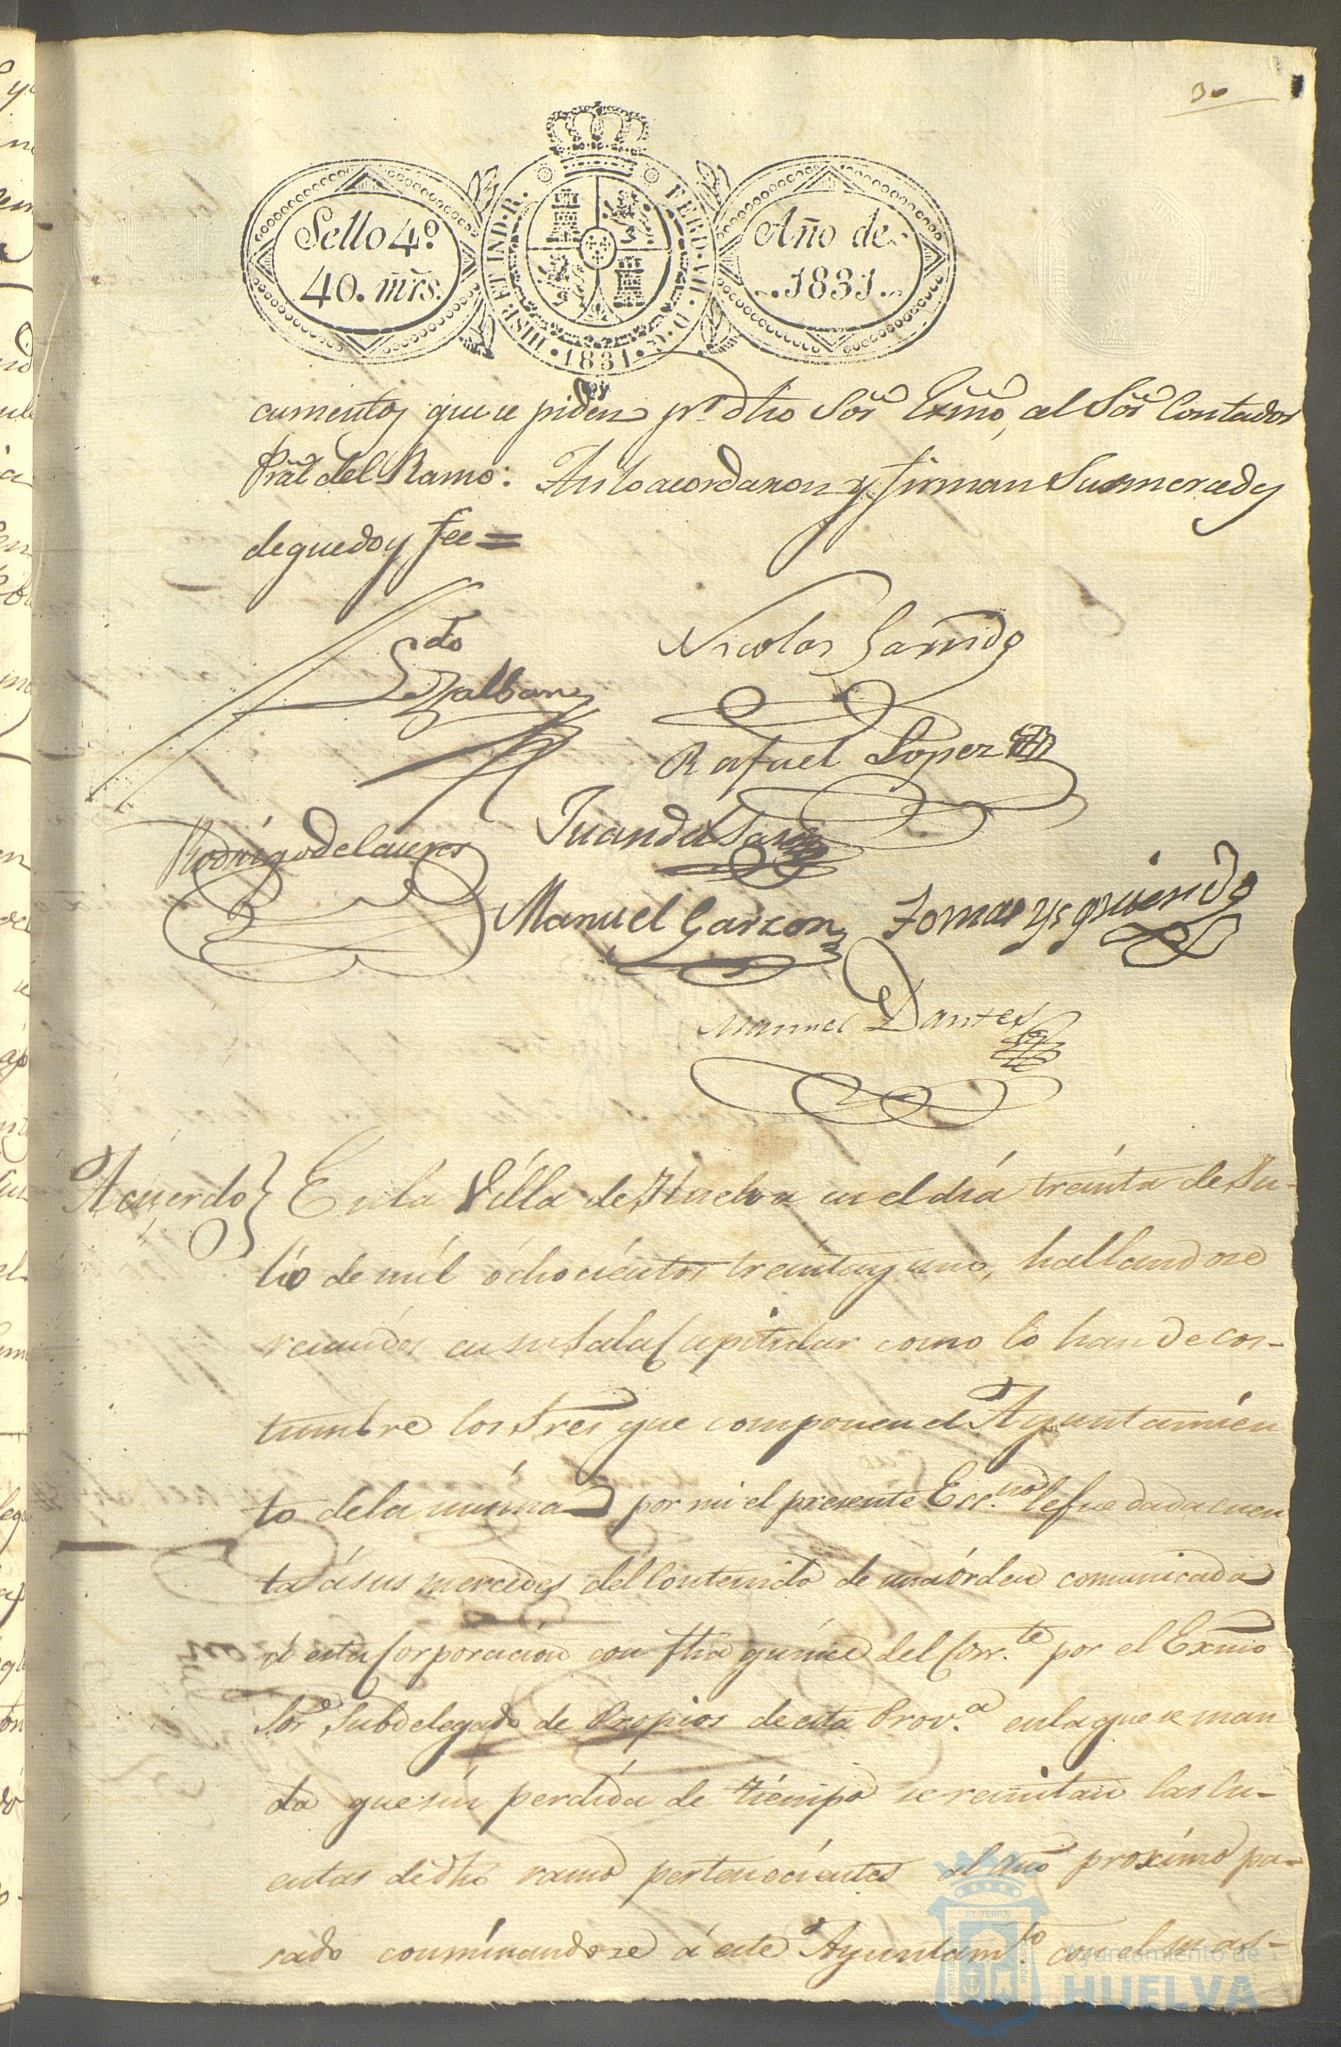 30
Sello 4º
40. mrs.
HISP. ET IND. R. FERD. VII. D. G. 1831.
Año de
1831.
cumentos que se piden pr. dho Sor. Exmo, al Sor. Contador
Pral del Ramo: Asi lo acordaron y firman Sus mercedes
de que doy fee =
Ldo
Galban
Nicolas Garrido
Rafael Lopez
Juan de
Rodrigo de
Manuel Garzon
Tomas Ysquierdo
Manuel Dantes
Acuerdo} En la Villa de Huelva en el día treinta de Ju-
lio de mil ochocientos treinta y uno, hallandose
reunidos en su Sala Capitular como lo han de cos-
tumbre los Sres que componen el Ayuntamien
to de la misma por mi el presente Esc.no le fue dada cuen
ta á sus mercedes del Contenido de una órden comunicada
á esta Corporacion con fha quince del Corr.te por el Exmo
Sor. Subdelegado de Propios de esta Prov.a en la que se man
da que sin perdida de tiempo se remitan las Cu-
entas de dho ramo pertenecientes al año proximo pa-
sado conminandose á este Ayuntam.to con el mas-
Ayuntamiento de
HUELVA